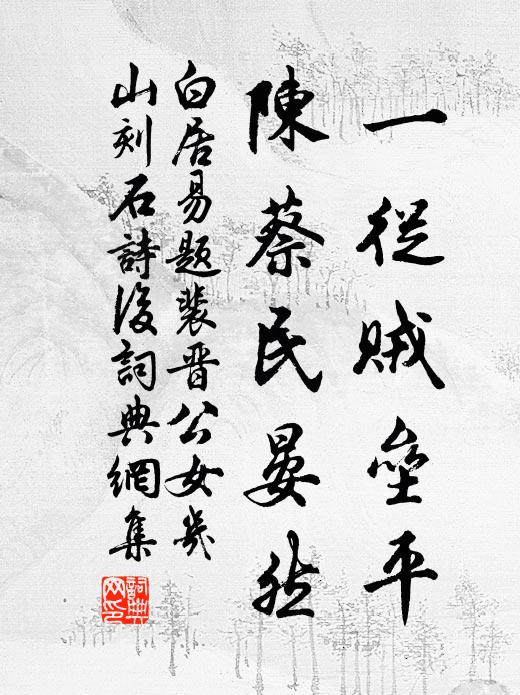 一從賊壘平
陳蔡民晏然
白居易題裴晉公女几
山刻石詩後詞典網集